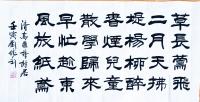 草長鶯飛
二月天拂
堤楊柳醉
春煙兒童
散學歸來
早忙趁東
風放紙鳶
清高鼎詩村居
壬寅